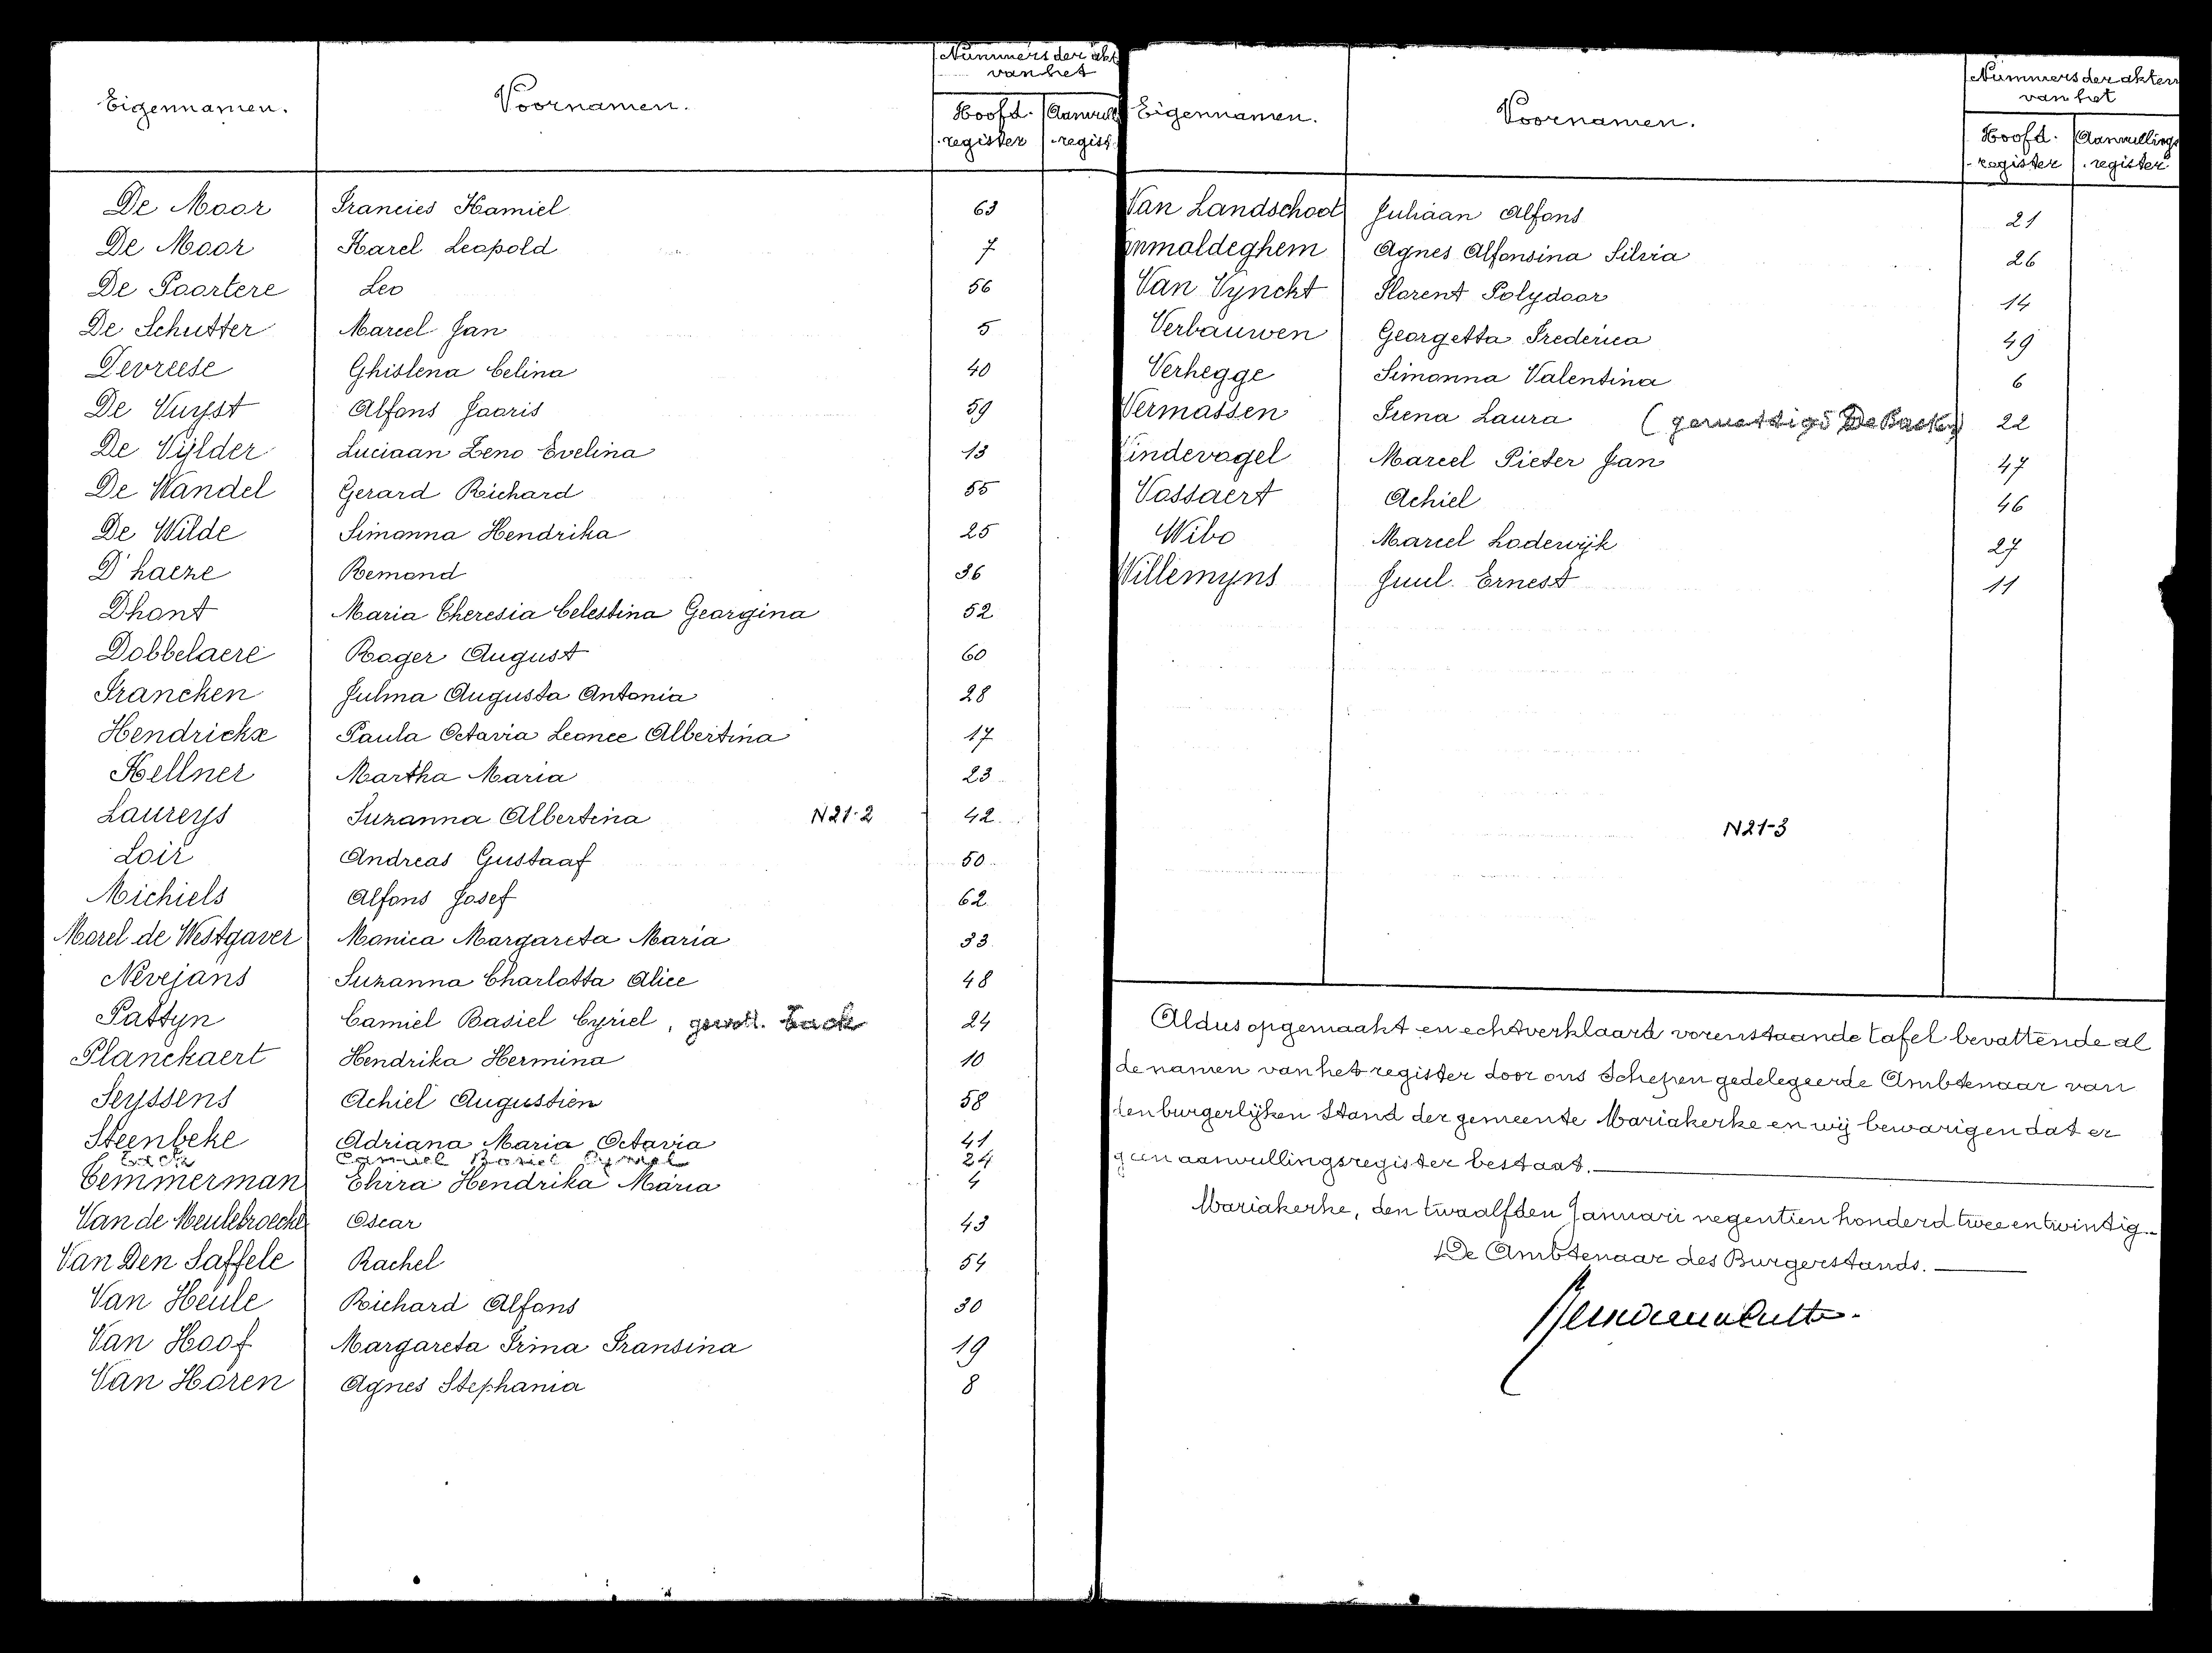 Nummers der akt
van het
Eigennamen. Voornamen. Hoofd- Aanvull
register regist
De Moor Francies Kamiel 63
De Moor Karel Leopold 7
De Poortere Leo 56
De Schutter Marcel Jan 5
Devreese Ghislena Celina 40
De Vuyst Alfons Jooris 59
De Vijlder Luciaan Zeno Evelina 13
De Wandel Gerard Richard 55
De Wilde Simonna Hendrika 25
D'haeze Remond 36
Dhont Maria Theresia Celestina Georgina 52
Dobbelaere Roger August 60
Francken Julma Augusta Antonia 28
Hendrickx Paula Octavia Leonce Albertina 17
Kellner Martha Maria 23
Laureys Suzanna Albertina N21-2 42
Loir Andreas Gustaaf 50
Michiels Alfons Josef 62
Morel de Westgaver Monica Margareta Maria 33
Nevejans Suzanna Charlotta Alice 48
Pattyn Camiel Basiel Cyriel, gewett. Tack 24
Planckaert Hendrika Hermina 10
Seyssens Achiel Augustien 58
Steenbeke Adriana Maria Octavia 41
Tack Camiel Basiel Cyriel 24
Temmerman Elvira Hendrika Maria 4
Van de Meulebroecke Oscar 43
Van Den Saffele Rachel 54
Van Heule Richard Alfons 30
Van Hoof Margareta Irma Fransina 19
Van Horen Agnes Stephania 8
Nummers der akten
van het
Eigennamen. Voornamen. Hoofd- Aanvullings
register register
Van Landschoot Juliaan Alfons 21
anmoldeghem Agnes Alfonsina Silvia 26
Van Vynckt Florent Polydoor 14
Verbauwen Georgetta Frederica 49
Verhegge Simonna Valentina 6
Vermassen Irena Laura (gewettigd De Backer) 22
Vindevogel Marcel Pieter Jan 47
Vossaert Achiel 46
Wibo Marcel Lodewijk 27
Willemyns Juul Ernest 11
N21-3
Aldus opgemaakt en echt verklaard vorenstaande tafel bevattende al
de namen van het register door ons Schepen gedelegeerde Ambtenaar van
den burgerlijken Stand der gemeente Mariakerke en wij bewarigen dat er
geen aanvullingsregister bestaat.
Mariakerke, den twaalfden Januari negentien honderd twee en twintig.
De Ambtenaar des Burgerstands.